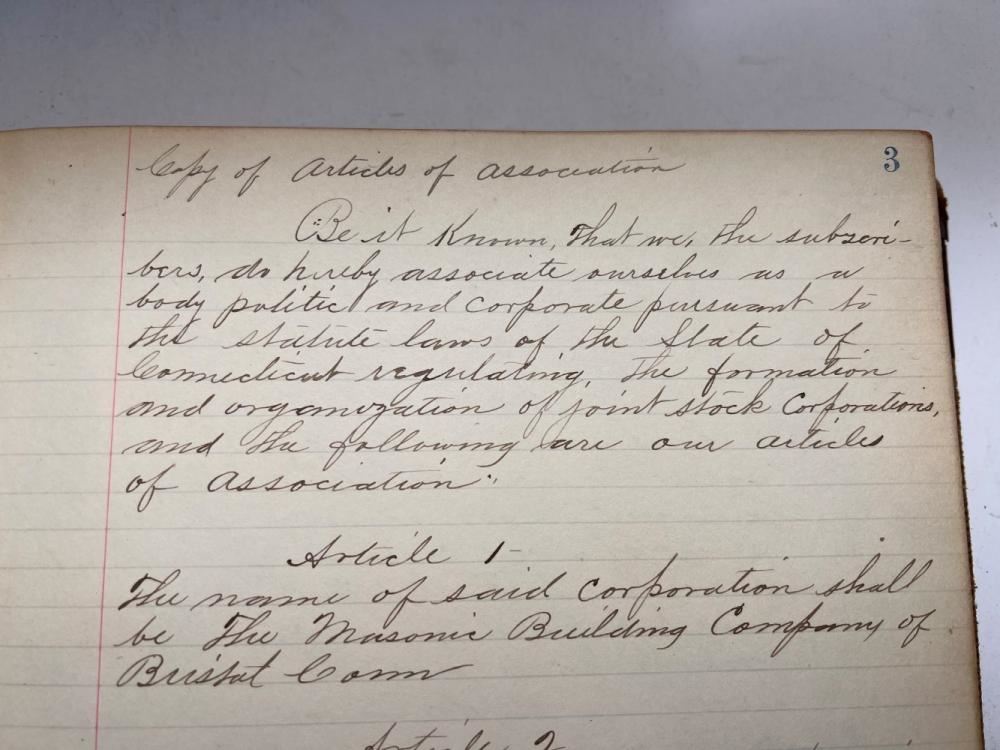 3
Copy of Articles of Association
Be it Known, That we, the subscri-
bers, do hereby associate ourselves as a
body politic and corporate pursuant to
the statute laws of the State of
Connecticut regulating, the formation
and organization of joint stock Corporations,
and the following are our articles
of Association:
Article 1-
The name of said corporation shall
be The Masonic Building Company of
Bristol Conn
Article 2